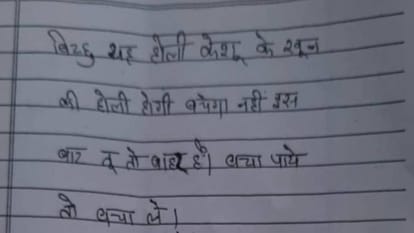 बिट्टु यह होली केशू के खून
की होली होगी बचेगा नहीं इस
बार तू तो बाहर है। बचा पाये
तो बचा ले।